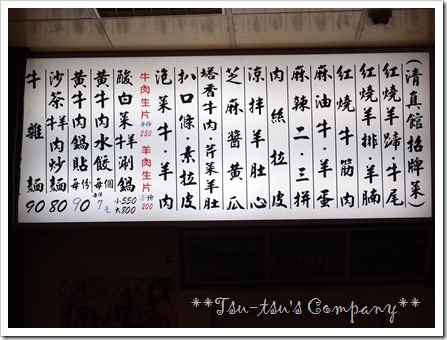 (清真館招牌菜)
紅燒羊蹄·牛尾
紅燒羊排·羊腩
紅燒牛筋肉
麻油牛·羊蛋
麻辣二·三拼
肉絲拉皮
涼拌羊肚心
芝麻醬黃瓜
塔香牛肉·芹菜羊肚
扒口條·素拉皮
泡菜牛·羊肉
牛肉生片 每份250 羊肉生片 每份200
酸白菜牛羊涮鍋 小550 大800
黃牛肉水餃 每個 7元
黃牛肉鍋貼 每份 90
沙茶牛羊肉炒麵 80
牛雜麵 90
**Tsu-tsu's Company**